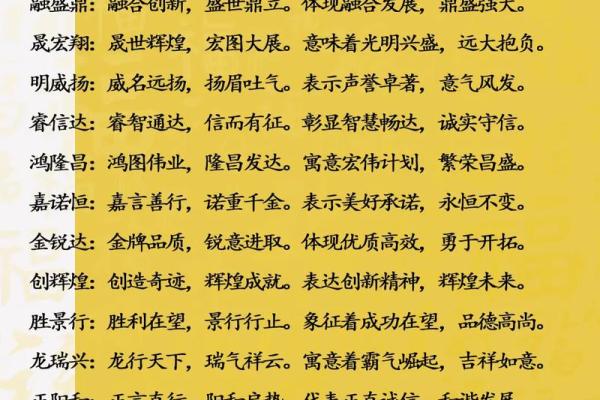 融盛鼎：融合创新，盛世鼎立。体现融合发展，鼎盛强大。
晟宏翔：晟世辉煌，宏图大展。意味着光明兴盛，远大抱负。
明威扬：威名远扬，扬眉吐气。表示声誉卓著，意气风发。
睿信达：睿智通达，信而有征。彰显智慧畅达，诚实守信。
鸿隆昌：鸿图伟业，隆昌发达。寓意宏伟计划，繁荣昌盛。
嘉诺恒：嘉言善行，诺重千金。表示美好承诺，永恒不变。
金锐达：金牌品质，锐意进取。体现优质高效，勇于开拓。
创辉煌：创造奇迹，辉煌成就。表达创新精神，辉煌未来。
胜景行：胜利在望，景行行止。象征着成功在望，品德高尚。
龙瑞兴：龙行天下，瑞气祥云。寓意着霸气崛起，吉祥如意。
正阳和：正言直行，阳和启蛰。代表正直诚信，和谐发展。